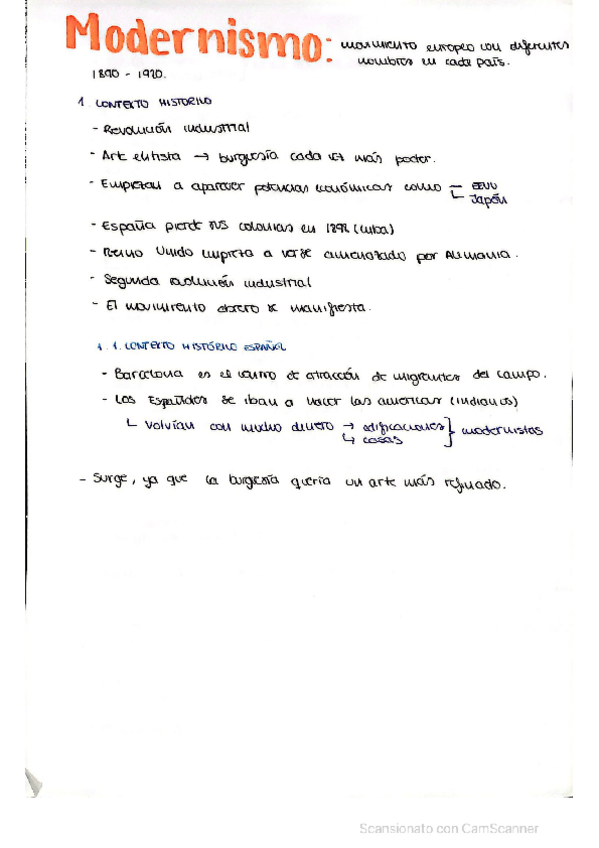 Modernismo: movimiento europeo con diferentes
nombres en cada país.
1890 - 1920.
1. CONTEXTO HISTÓRICO
- Revolución industrial
- Art elitista → burguesía cada vez más poder.
- Empiezan a aparecer potencias económicas como EEUU
Japón
- España pierde sus colonias en 1898 (Cuba)
- Reino Unido empieza a verse amenazado por Alemania.
- Segunda revolución industrial
- El movimiento obrero se manifiesta.
1.1. CONTEXTO HISTÓRICO ESPAÑOL
- Barcelona es el centro de atracción de migrantes del campo.
- Los Españoles se iban a hacer las américas (indianos)
└ Volvían con mucho dinero → edificaciones } modernistas
↳ casas
- Surge, ya que la burgesía quería un arte más refinado.
Scansionato con CamScanner